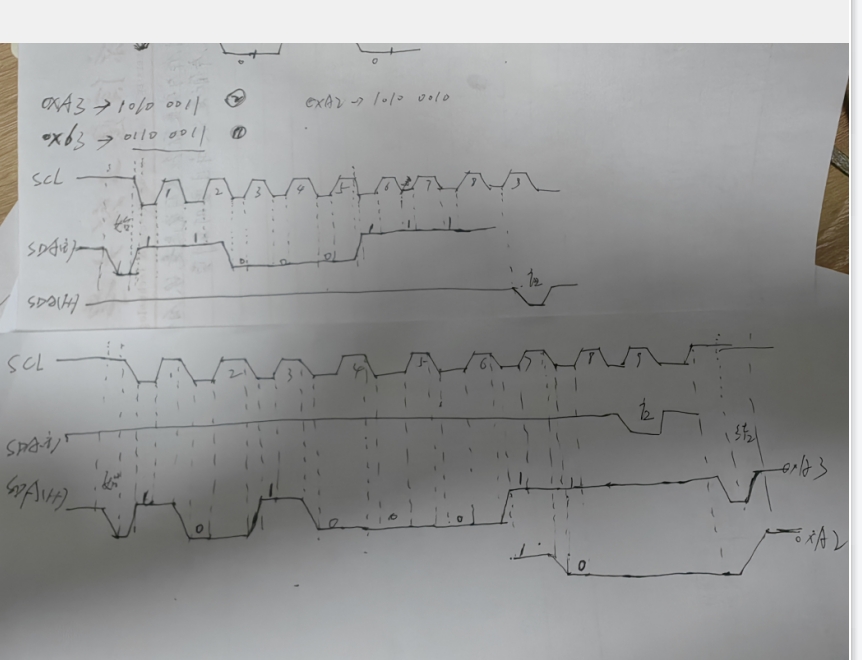 0 1 0
0xA3 → 1010 0011 ② 0xA2 → 1010 0010
0x63 → 0110 0011 ①
SCL 1 2 3 4 5 6 7 8 9
SDA(主) 1 1 0 0 0 1 1 1
SDA(从)
SCL 2 3 4 5 6 7 8 9
SDA(主)
SDA(从) 1 0 1 0 0 0 1 1 0xA3
1 0 0xA2